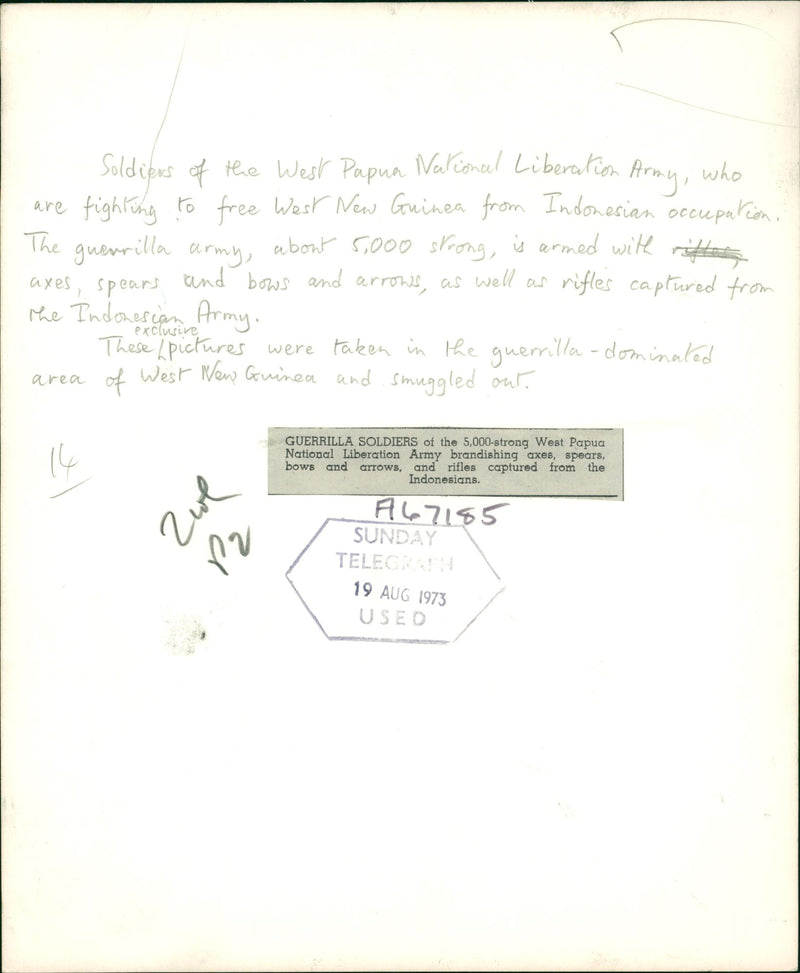 Soldiers of the West Papua National Liberation Army, who
are fighting to free West New Guinea from Indonesian occupation.
The guerrilla army, about 5,000 strong, is armed with rifles,
axes, spears and bows and arrows, as well as rifles captured from
the Indonesian Army.
exclusive
These pictures were taken in the guerrilla-dominated
area of West New Guinea and smuggled out.
14
GUERRILLA SOLDIERS of the 5,000-strong West Papua
National Liberation Army brandishing axes, spears,
bows and arrows, and rifles captured from the
Indonesians.
A67185
SUNDAY
TELEGRAPH
19 AUG 1973
USED